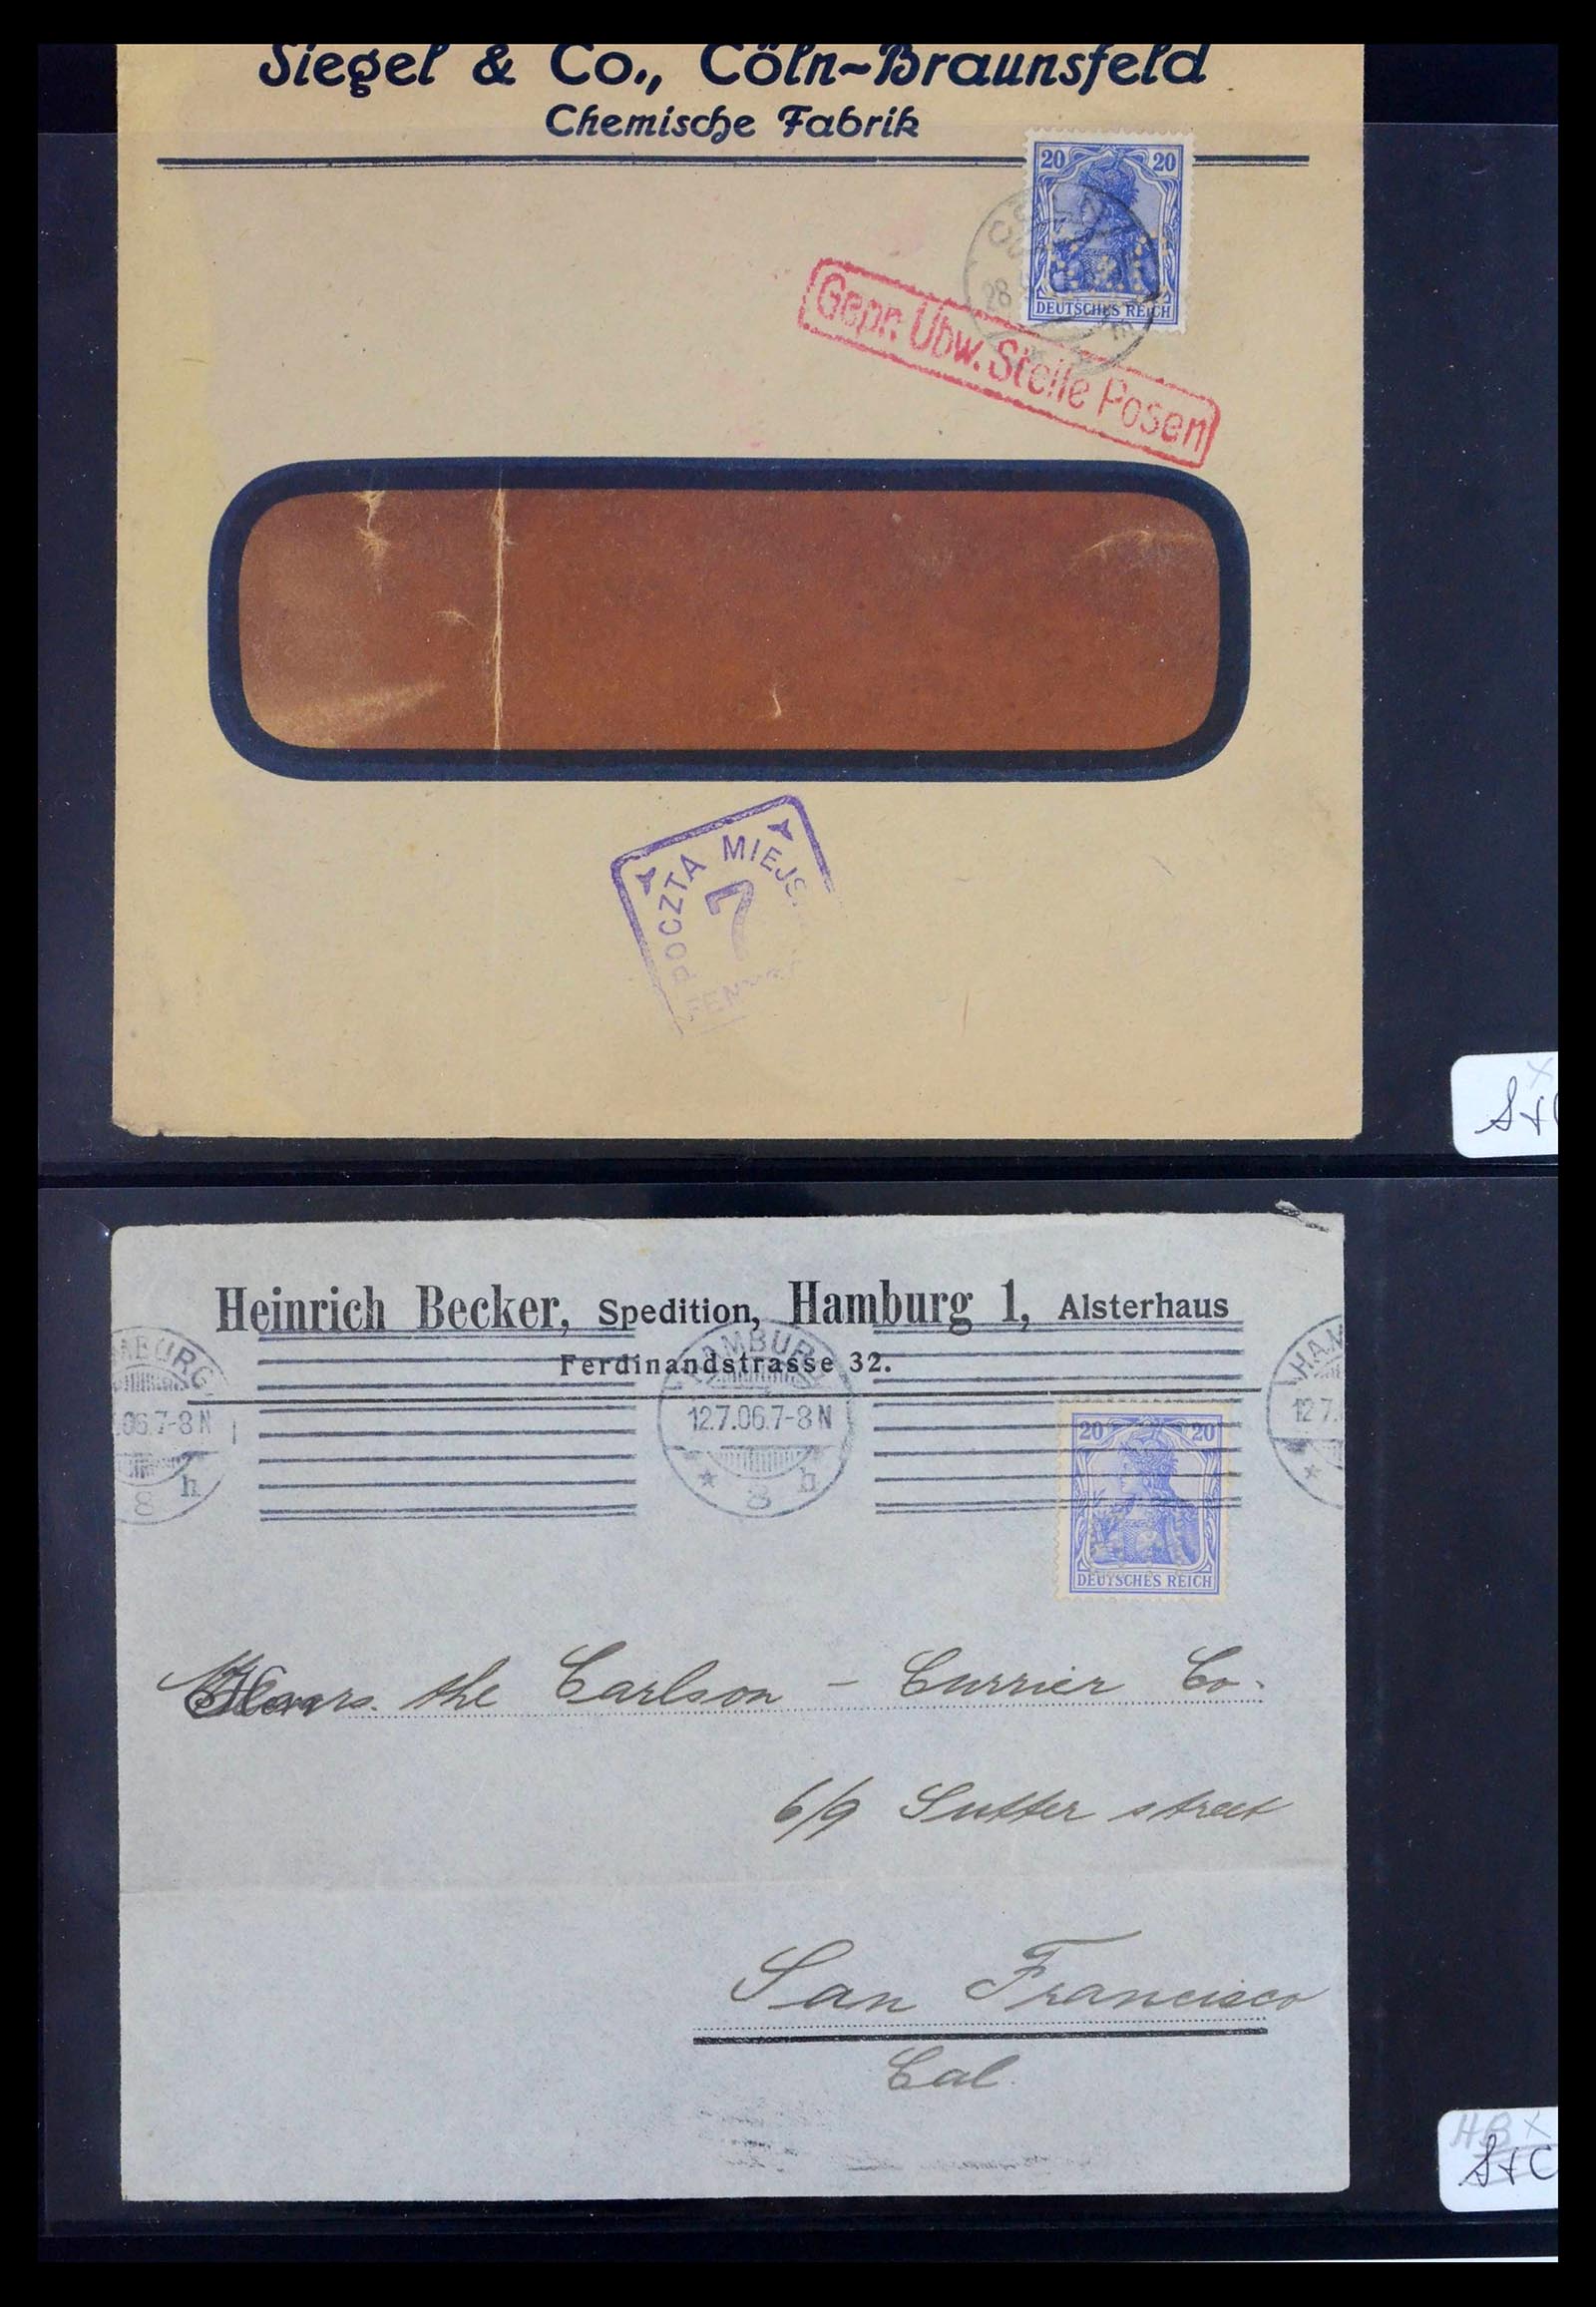 Siegel & Co., Cöln-Braunsfeld
Chemische Fabrik
20 20
DEUTSCHES REICH
28
Gepr. Übw. Stelle Posen
POCZTA MIEJS
7
FEN
S+C
Heinrich Becker, Spedition, Hamburg 1, Alsterhaus
Ferdinandstrasse 32.
HAMBURG
12.7.06.7-8N
* 8 h
MBURG
.06.7-8N
8 h
HAM
12.7.
*
20 20
DEUTSCHES REICH
the Carlson - Currier Co.
6/9 Sutter street
San Francisco
Cal.
HB X
S+C